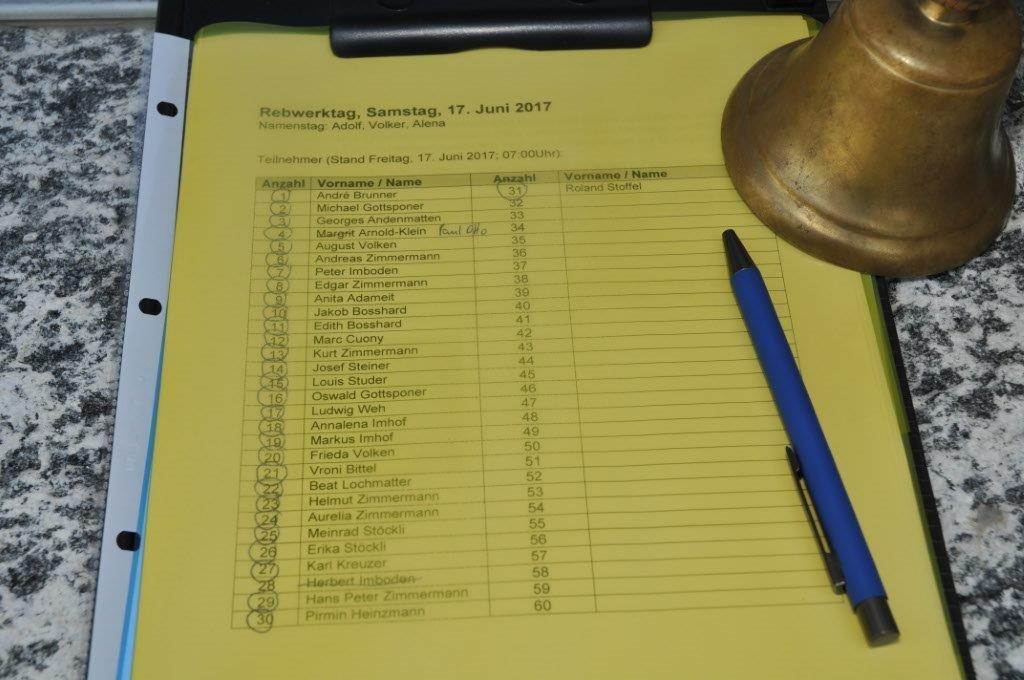 Rebwerktag, Samstag, 17. Juni 2017
Namenstag: Adolf, Volker, Alena
Teilnehmer (Stand Freitag, 17. Juni 2017; 07:00Uhr):
Anzahl Vorname / Name Anzahl Vorname / Name
1 André Brunner 31 Roland Stoffel
2 Michael Gottsponer 32
3 Georges Andenmatten 33
4 Margrit Arnold-Klein Paul Otto 34
5 August Volken 35
6 Andreas Zimmermann 36
7 Peter Imboden 37
8 Edgar Zimmermann 38
9 Anita Adameit 39
10 Jakob Bosshard 40
11 Edith Bosshard 41
12 Marc Cuony 42
13 Kurt Zimmermann 43
14 Josef Steiner 44
15 Louis Studer 45
16 Oswald Gottsponer 46
17 Ludwig Weh 47
18 Annalena Imhof 48
19 Markus Imhof 49
20 Frieda Volken 50
21 Vroni Bittel 51
22 Beat Lochmatter 52
23 Helmut Zimmermann 53
24 Aurelia Zimmermann 54
25 Meinrad Stöckli 55
26 Erika Stöckli 56
27 Karl Kreuzer 57
28 Herbert Imboden 58
29 Hans Peter Zimmermann 59
30 Pirmin Heinzmann 60